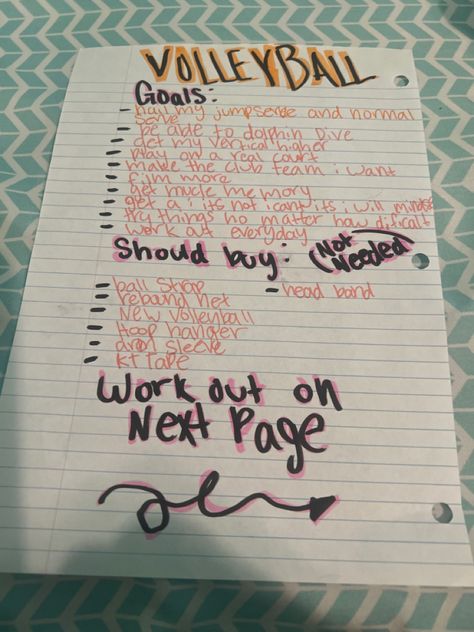 VOLLEYBALL
Goals:
- nail my jumpserve and normal
serve
- be able to dolphin dive
- get my vertical higher
- play on a real court
- make the club team i want
- film more
- get mucle memory
- get a ; its not i cant its i will mindset
- try things no matter how dificalt
- work out everyday
Should buy: (Not Needed)
- ball strap - head band
- rebound net
- New volleyball
- Hoop hanger
- arm sleeve
- KT Tape
Work out on
Next Page